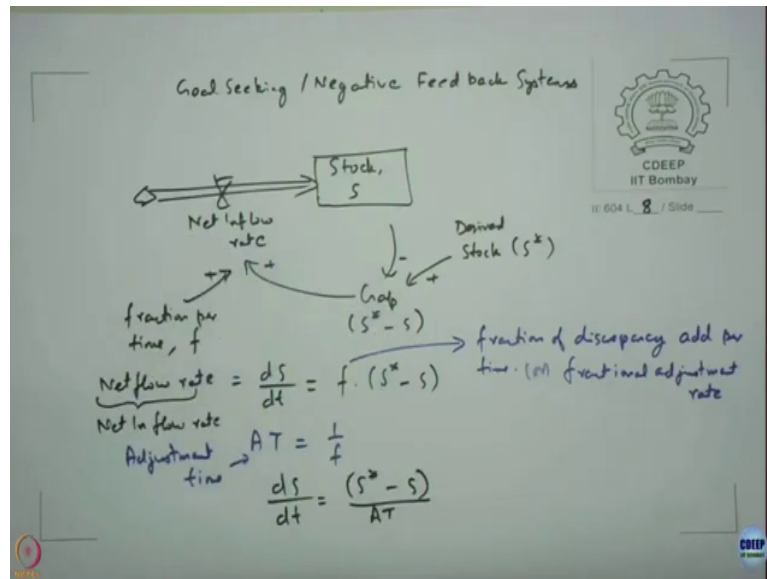 Goal Seeking / Negative Feedback Systems
CDEEP
IIT Bombay
IE 604 L 8 / Slide
Stock,
S
Net Inflow
rate
Desired
Stock (S*)
-
+
+
+
Gap
(S* - S)
fraction per
time, f
fraction of discrepancy add per
time. (or) fractional adjustment
rate
Net flow rate = dS/dt = f. (S* - S)
Net Inflow rate
Adjustment
time
AT = 1/f
dS/dt = (S* - S)/AT
NPTEL
CDEEP
IIT Bombay